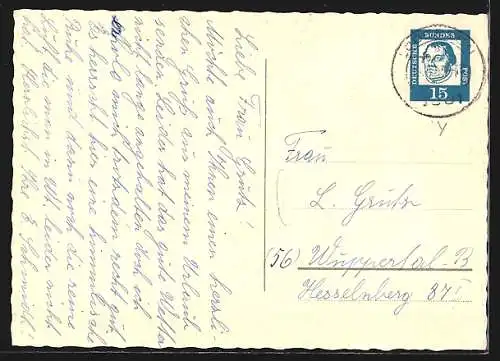 Liebe Frau Grütz!
Möchte auch Ihnen einen herzli-
chen Gruß aus meinem Urlaub
senden. Leider hat das gute Wetter
nicht lange angehalten doch ich
erhole mich trotzdem recht gut.
Es herrscht hier eine himmlische
Ruhe und dann noch die reine
Luft die man in Wt. leider nicht
hat. Herzlichst Ihre E. Schmidt!
DEUTSCHE BUNDESPOST
15
Frau
L. Grütz
(56) Wuppertal-B
Hesselnberg 87 I